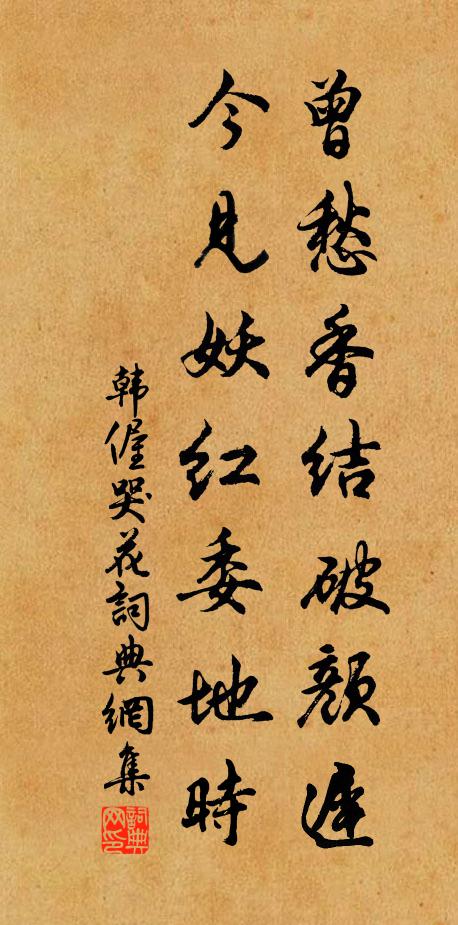 曾愁香结破颜遲
今見妖红委地時
韩偓哭花詞典網集
詞典网印